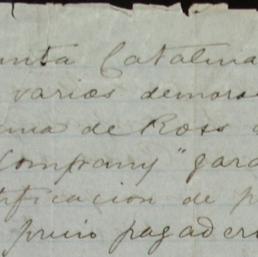 unta Catalina
varios demoras
ma de Ross
Company" gara
tificacion de p
precio pagader